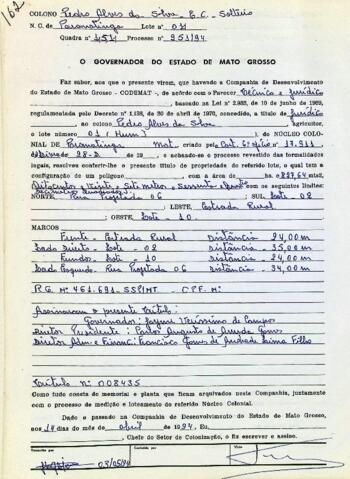 162
COLONO Pedro Alves da Silva - E.C. - Solteiro
N. C. de Paranatinga Lote n° 01
Quadra n° 454 Processo n° 951/94
O GOVERNADOR DO ESTADO DE MATO GROSSO
Faz saber, aos que a presente virem, que havendo a Companhia de Desenvolvimento
do Estado de Mato Grosso - CODEMAT -, de acôrdo com o Parecer Técnico e Jurídico
, baseado na Lei n° 2.983, de 10 de junho de 1969,
regulamentada pelo Decreto n° 1.138, de 30 de abril de 1970, concedido, a título de Jurídico
, ao colono Pedro Alves da Silva agricultor,
o lote número 01 (Hum) do NÚCLEO COLO-
NIAL DE Paranatinga Mat. criado pelo Cart. 6° Ofício n° 17.911
de 28-2- de 19 , e achando-se o processo revestido das formalidades
legais, resolveu conferir-lhe o presente título de propriedade do referido lote, o qual tem a
configuração de um polígono com a área de ha. e 827,64 mts2,
Oitocentos e Vinte e Sete metros e Sessenta e Quatro com os seguintes limites:
NORTE, Rua Projetada 06 ; SUL, Lote - 02
; LESTE, Estrada Rural
; OESTE, Lote - 10
MARCOS
Frente - Estrada Rural Distância - 24,00 m
Lado Direito - Lote - 02 Distância - 35,00 m
Fundos - Lote - 10 Distância - 24,00 m
Lado Esquerdo - Rua Projetada 06 Distância - 34,00 m
R.G. N° 461.691-SSP/MT - C.P.F. N°
Assinaram o presente título:
Governador: Jayme Veríssimo de Campos
Diretor Presidente: Carlos Augusto de Arruda Gomes
Diretor Adm e Financ: Francisco Gomes de Andrade Lima Filho
Título N° 008435
Como tudo consta do memorial e planta que ficaram arquivados nesta Companhia, juntamente
com o processo de medição e loteamento do referido Núcleo Colonial.
Dado e passado na Companhia de Desenvolvimento do Estado de Mato Grosso,
aos 14 dias do mês de abril de 1994. Eu,
, Chefe do Setor de Colonização, o fiz escrever e assino.
Transcrito Conferido Visto
03/05/94